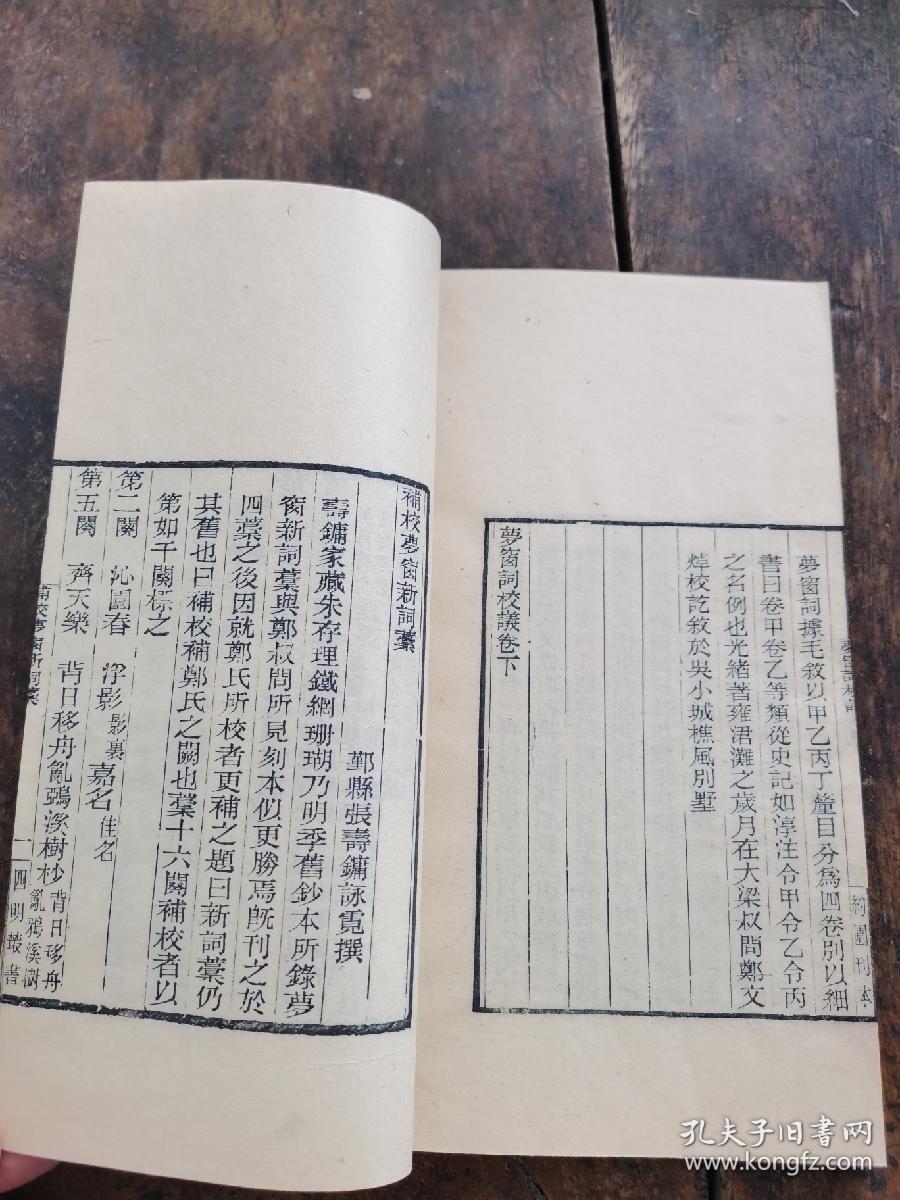 夢窗詞據毛敘以甲乙丙丁釐目分為四卷別以細
書曰卷甲卷乙等類從史記如淳注令甲令乙令丙
之名例也光緒著雍涒灘之歲月在大梁叔問鄭文
焯校訖敘於吳小城樵風別墅
夢窗詞校議卷下
約園刊本
補校夢窗新詞藁
鄞縣張壽鏞詠霓撰
壽鏞家藏朱存理鐵網珊瑚乃明季舊鈔本所錄夢
窗新詞藁與鄭叔問所見刻本似更勝焉旣刊之於
四藁之後因就鄭氏所校者更補之題曰新詞藁仍
其舊也曰補校補鄭氏之闕也藁十六闋補校者以
第如干闋標之
第二闋 沁園春 浮影影裏嘉名佳名
第五闋 齊天樂 背日移舟亂鵶溪樹杪背日移舟亂鴉溪樹
補校夢窗新詞藁
一 四明叢書
孔夫子旧书网
www.kongfz.com